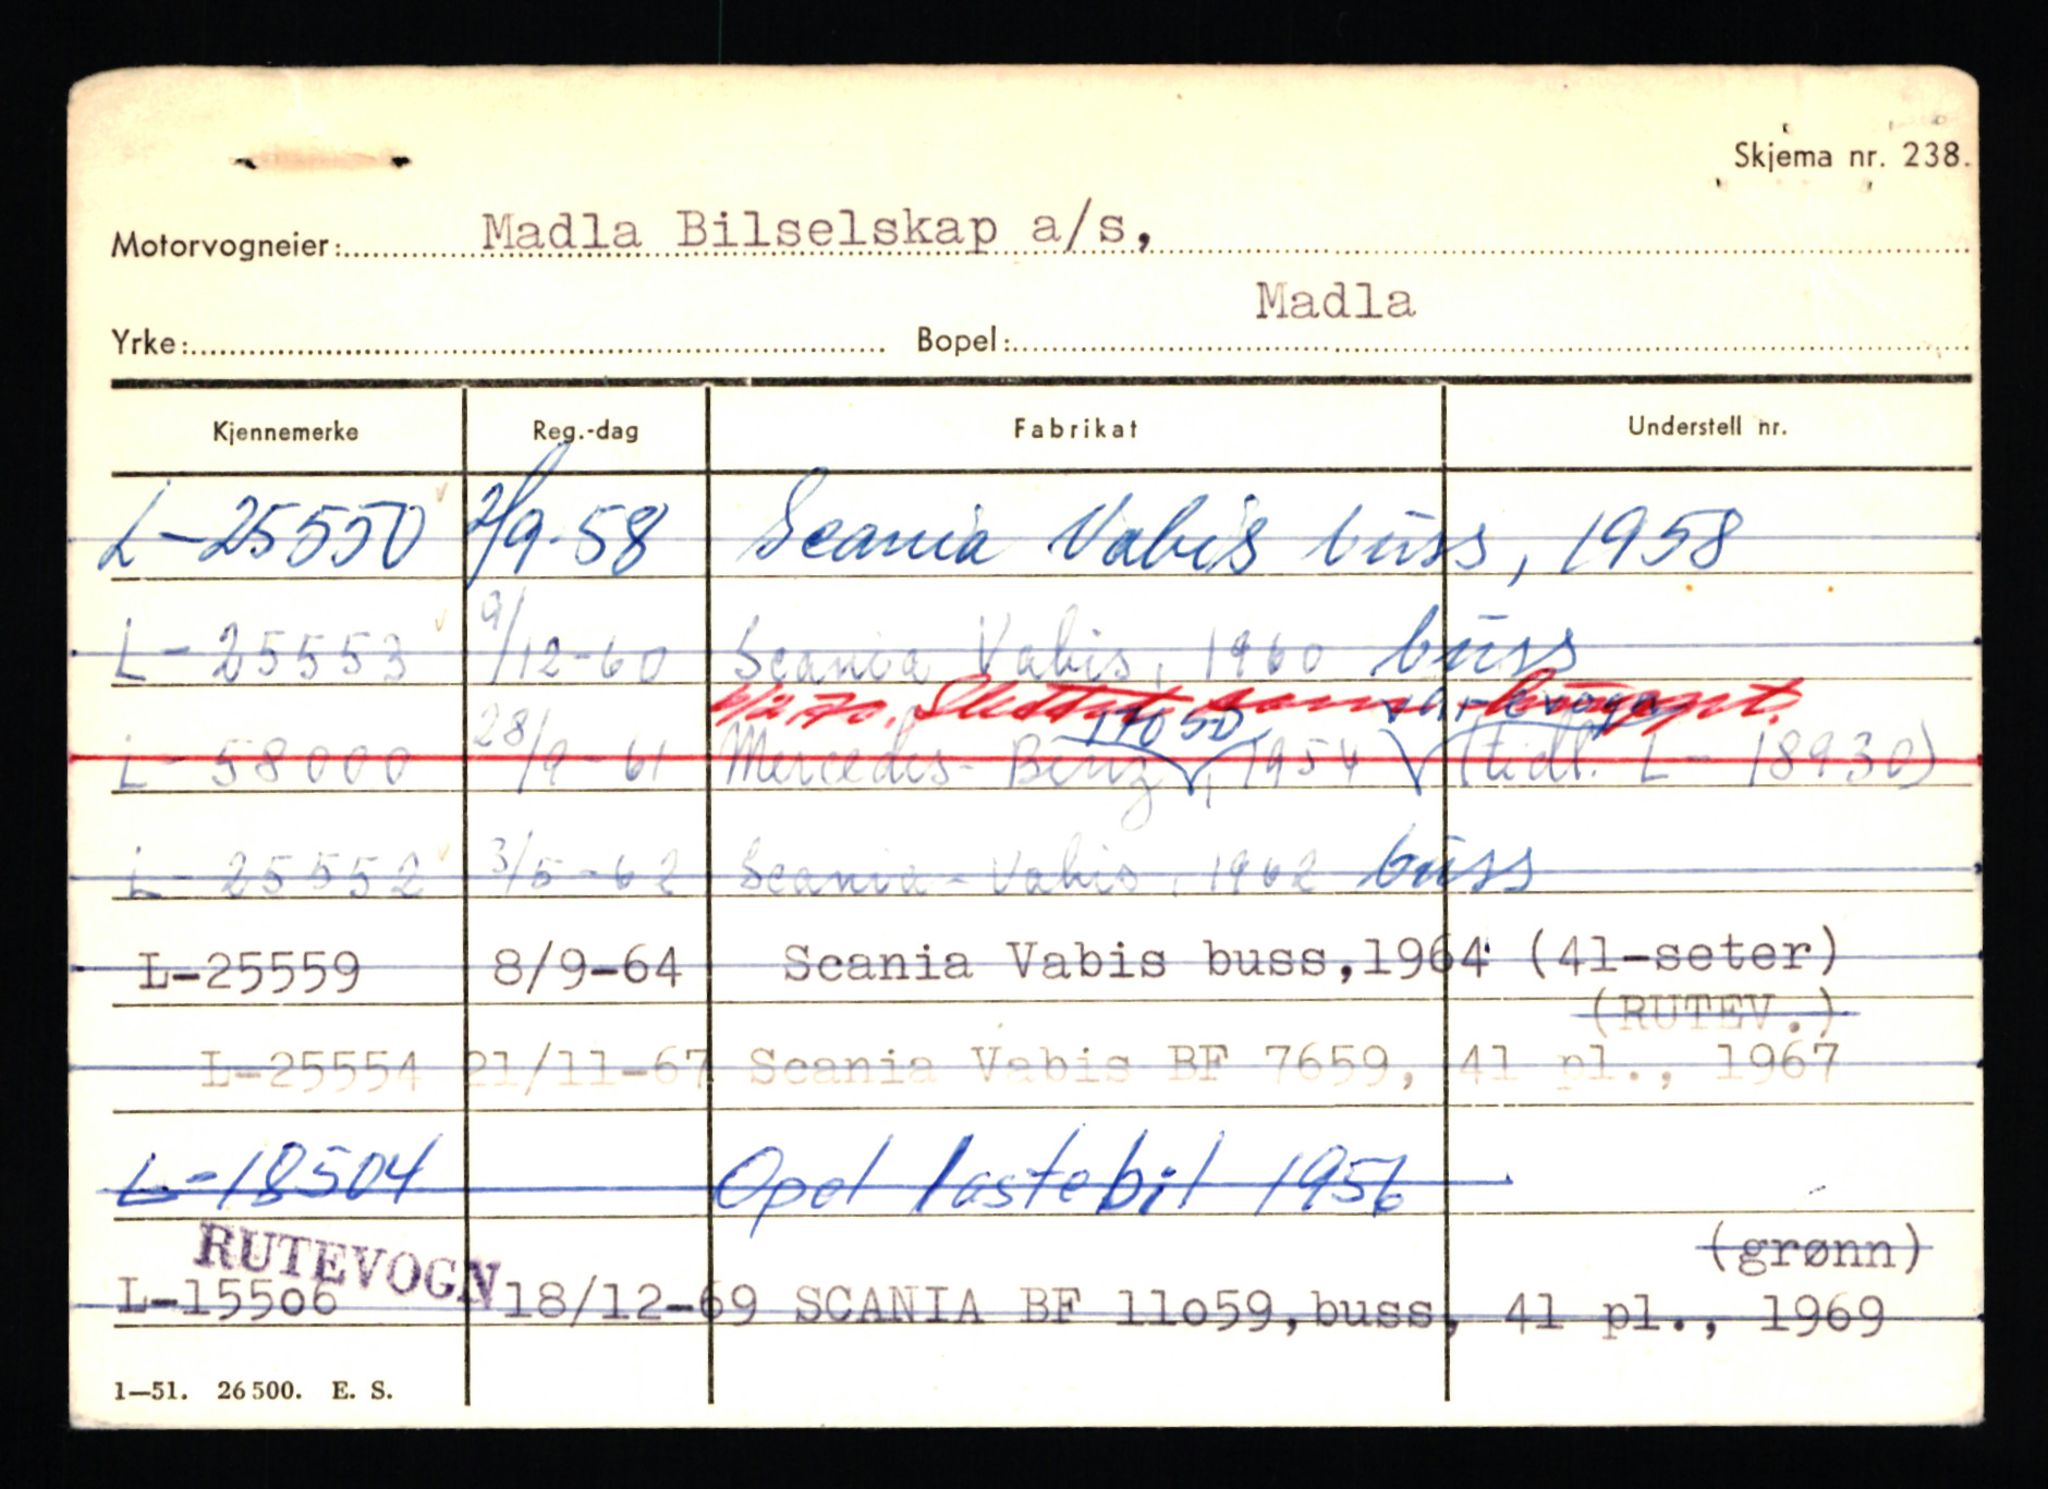 Skjema nr. 238.
Motorvogneier: Madla Bilselskap a/s,
Madla
Yrke: Bopel:
Kjennemerke Reg.-dag Fabrikat Understell nr.
L-25550 2/9-58 Scania Vabis buss, 1958
L-25553 9/12-60 Scania Vabis, 1960 buss
Slettet som
17050
L-58000 28/9-61 Mercedes-Benz, 1954 (tidl. L-18930)
L-25552 3/5-62 Scania-Vabis, 1962 buss
L-25559 8/9-64 Scania Vabis buss,1964 (41-seter)
(RUTEV.)
L-25554 21/11-67 Scania Vabis BF 7659, 41 pl., 1967
L-18504 Opel lastebil 1956
RUTEVOGN (grønn)
L-15506 18/12-69 SCANIA BF 11o59,buss, 41 pl., 1969
1—51. 26 500. E. S.